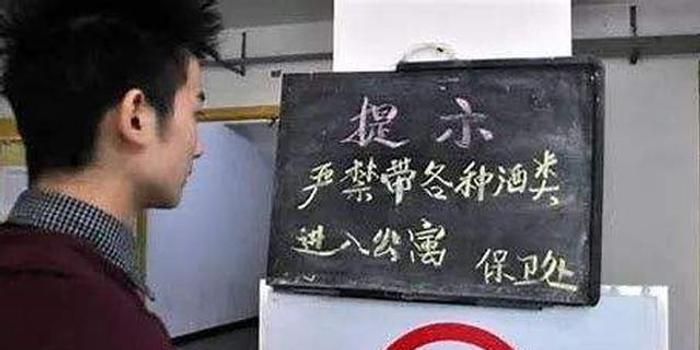 提示
严禁带各种酒类
进入公寓
保卫处